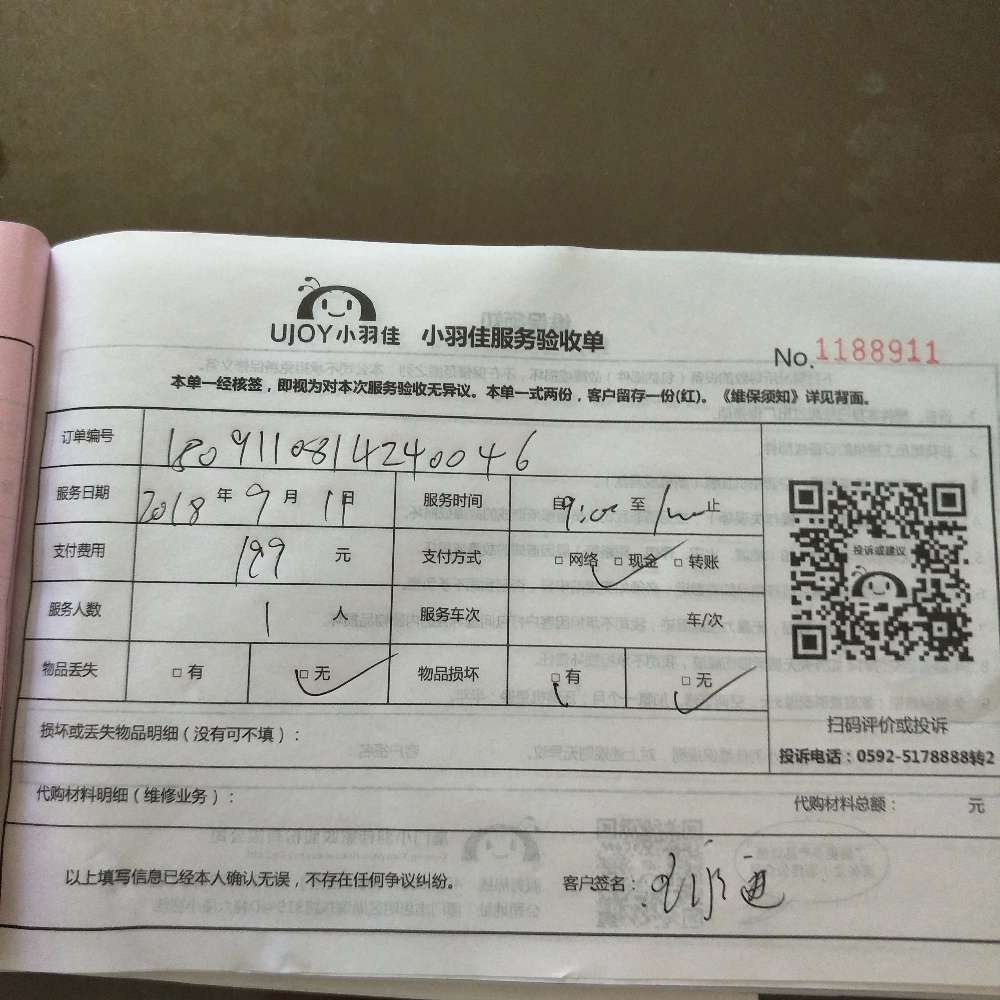 UJOY小羽佳 小羽佳服务验收单
No.1188911
本单一经核签，即视为对本次服务验收无异议。本单一式两份，客户留存一份(红)。《维保须知》详见背面。
订单编号 18091108142420046
服务日期 2018年9月1日 服务时间 自9:00至 止
支付费用 199元 支付方式 □网络 □现金 □转账
投诉或建议
服务人数 1人 服务车次 车/次
物品丢失 □有 □无 物品损坏 □有 □无
扫码评价或投诉
损坏或丢失物品明细（没有可不填）：
投诉电话：0592-5178888转2
代购材料明细（维修业务）： 代购材料总额： 元
以上填写信息已经本人确认无误，不存在任何争议纠纷。 客户签名：